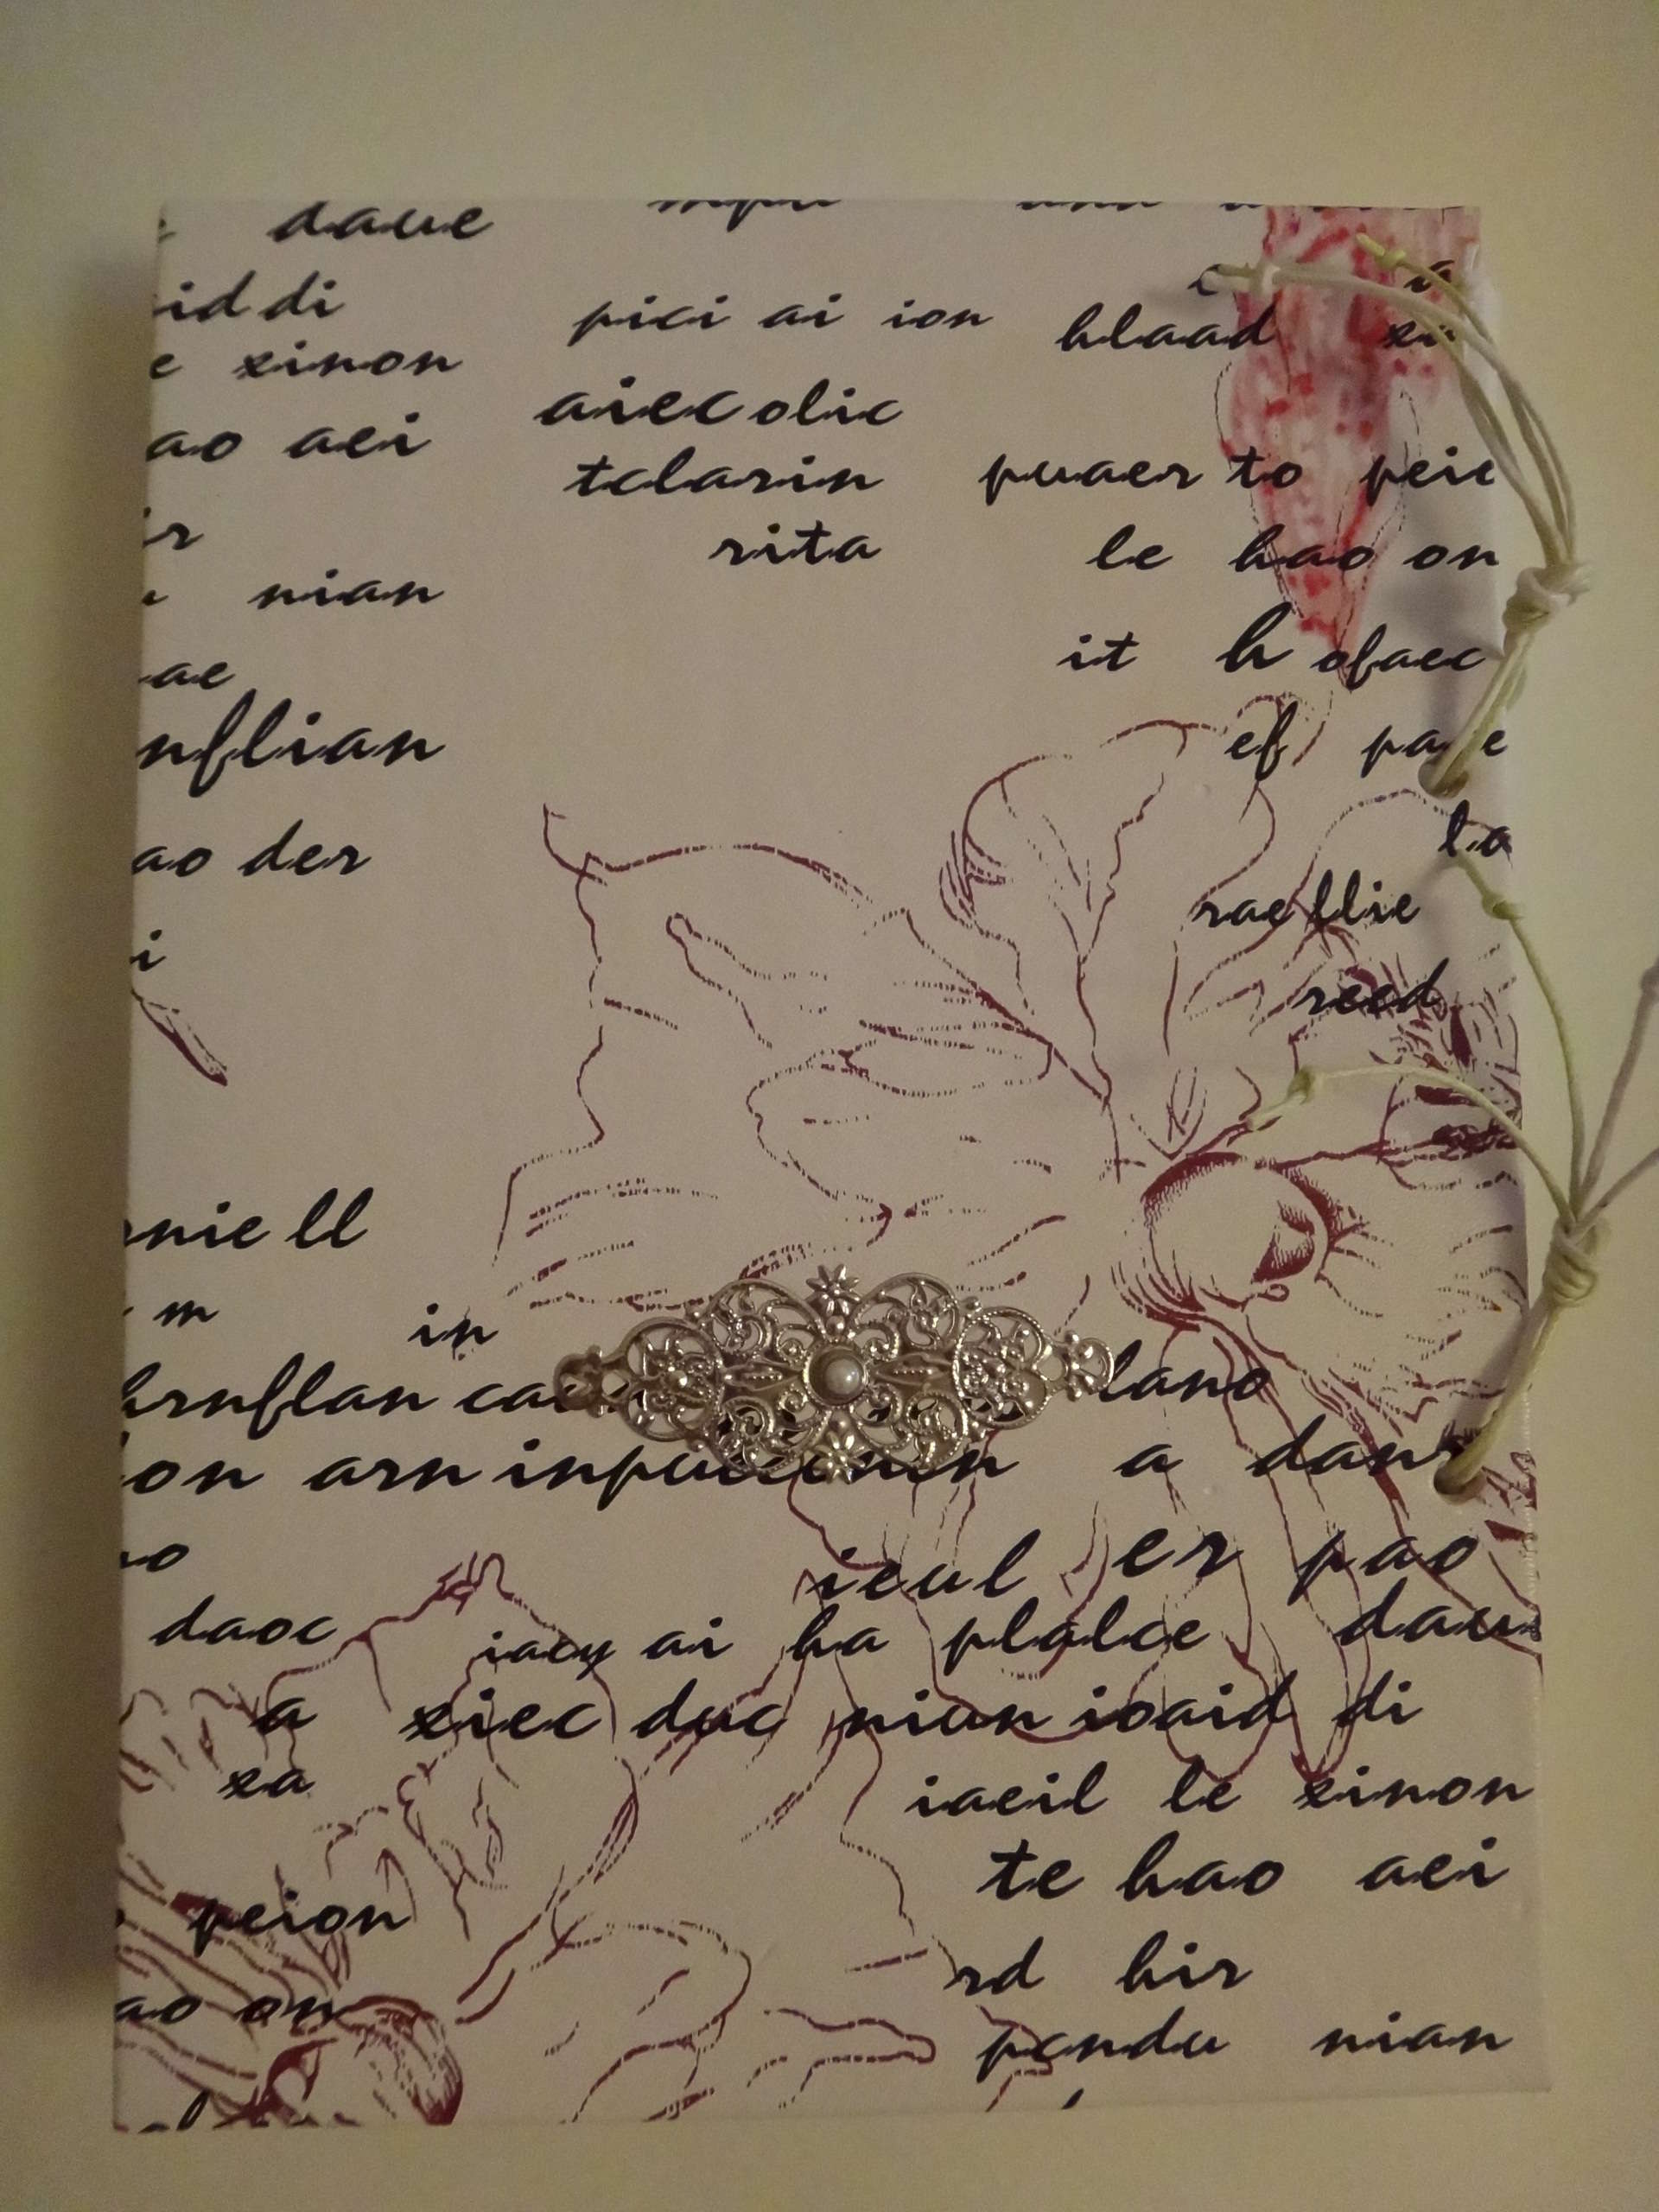 daue
id di pici ai ion blaad
e xinon
aiec olic
ao aei
tclarin puaer to peie
rita le hao on
nian
it h ofaec
ae
nflian ef
ao der la
rae llie
i
reed
nie ll
m in
lano
on arn a dans
ieul er pao
daoc iacy ai ha plalce dau
a xiec duc niun ioaid di
xa iaeil le xinon
te hao aei
peion
rd hir
ao on
pcndu nian